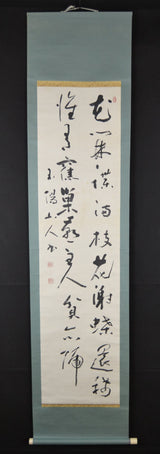 花開蝶滿枝花謝蝶還稀
惟有舊巢燕主人貧亦歸
山人書